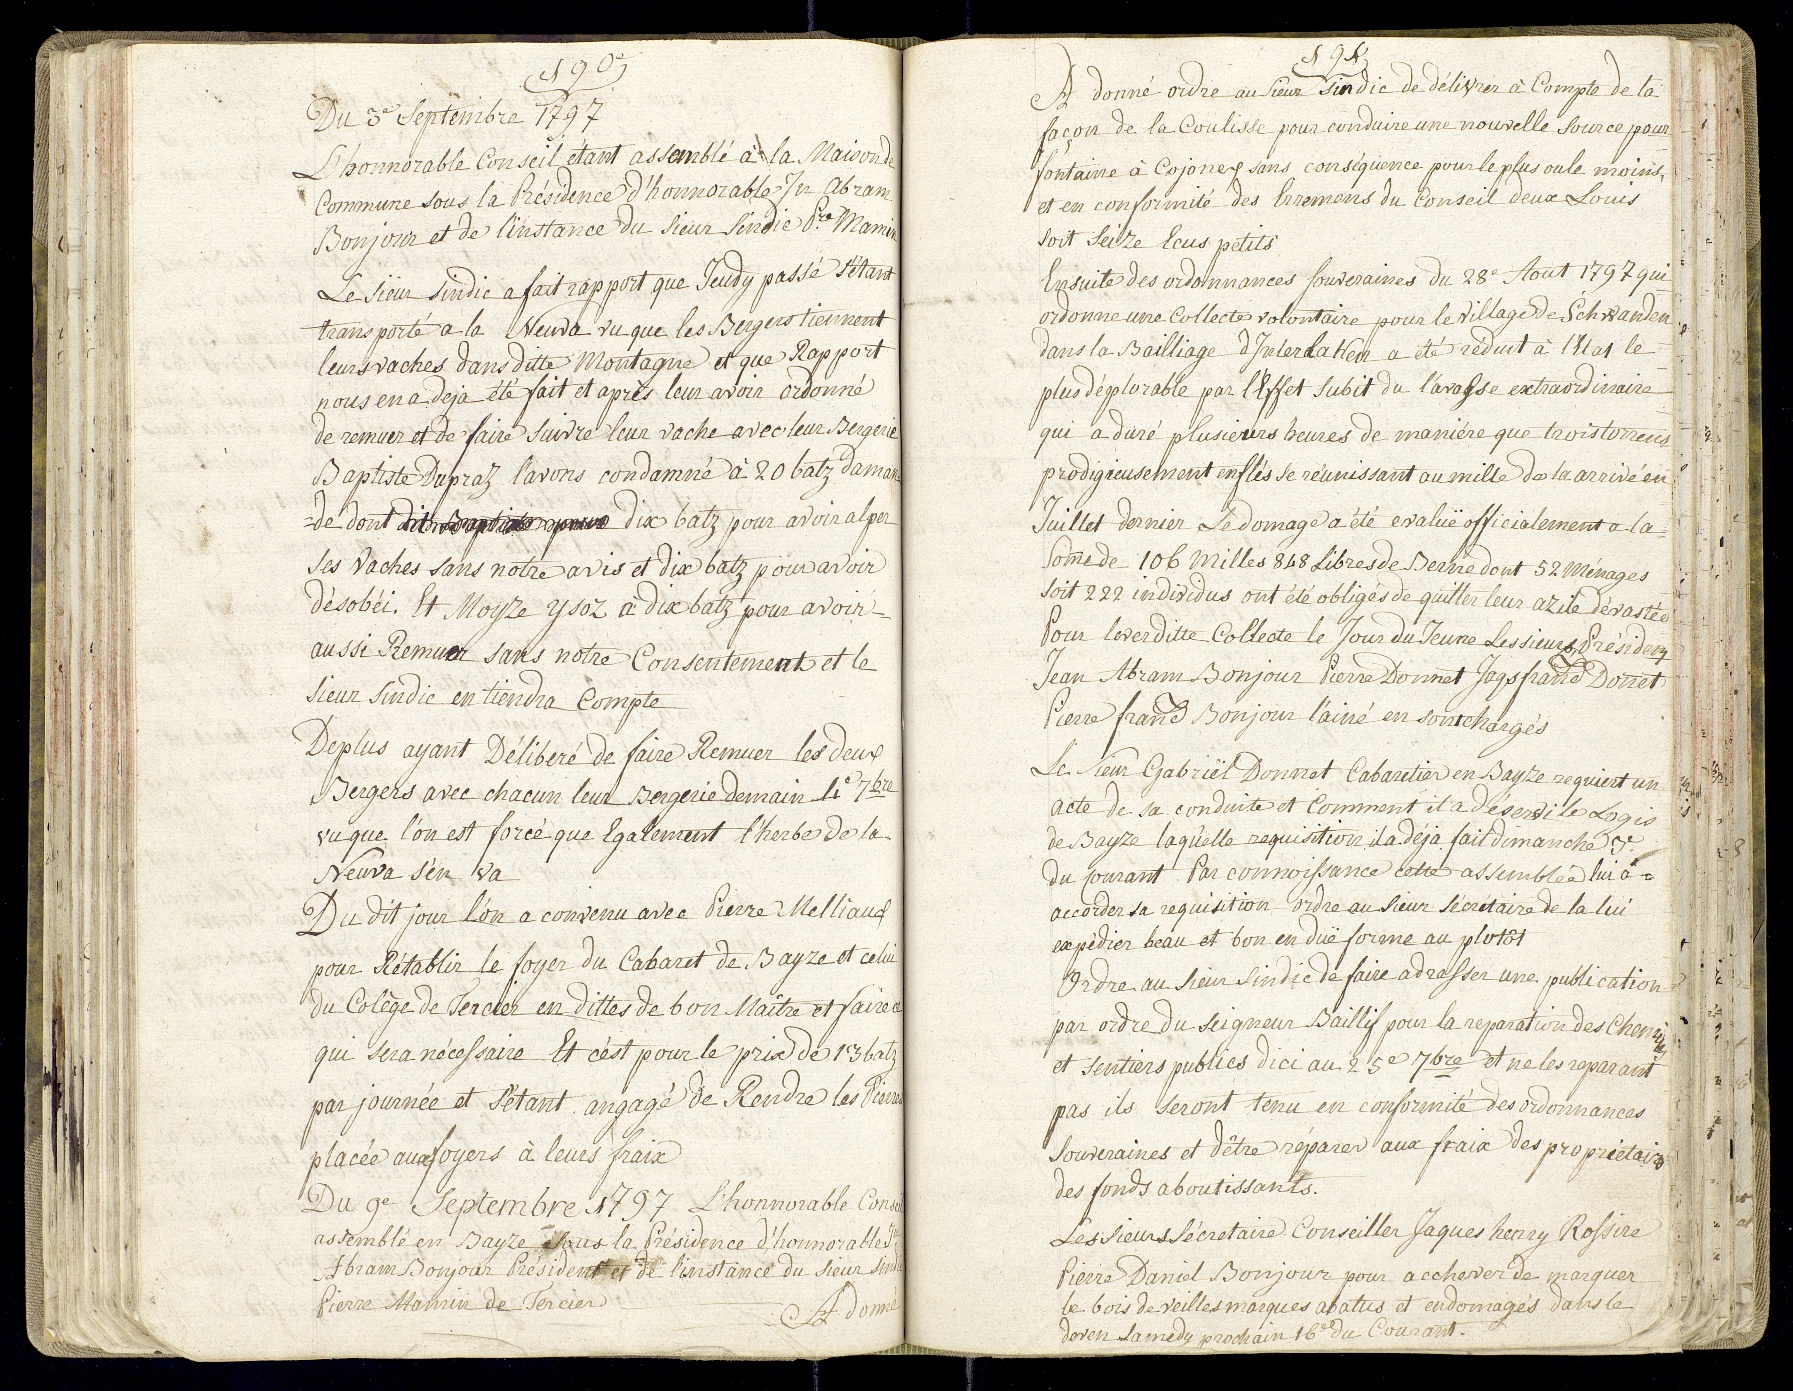 190
Du 3e Septembre 1797
L'honnorable Conseil étant assemblé à la Maison de
Commune sous la Présidence d'honnorable Jn Abram
Bonjour et de linstance du sieur Sindic Pre Mamin
Le Sieur Sindic a fait rapport que Jeudy passé s'étant
transporté a la Neuva vu que les Bergers tiennent
leurs vaches dans ditte Montagne et que Rapport
nous en a deja été fait et après leur avoir ordonné
de remuer et de faire suivre leur vache avec leur Bergerie
Baptiste Dupraz l'avons condamné à 20 batz daman=
=de dont dix batz pour avoir alper
ses Vaches sans notre avis et dix batz pour avoir
désobéi. Et Moyze ysoz a dix batz pour avoir
aussi Remuer sans notre Consentement et le
sieur Sindic en tiendra Compte
Deplus ayant Déliberé de faire Remuer les deux
Bergers avec chacun leur Bergerie demain 4e 7bre
vu que l'on est forcé que Egalement l'herbe de la
Neuva s'en va
Du dit jour l'on a convenu avec Pierre Melliaux
pour Rétablir le foyer du Cabaret de Bayze et celui
du Colège de Tercier en dittes de bon Maître et faire ce
qui sera nécessaire Et c'est pour le prix de 13 batz
par journée et s'étant angagé de Rendre les Pierres
placée aux foyers à leurs fraix
Du 9e Septembre 1797 L'honnorable Conseil
assemblé en Bayze sous la Présidence d'honnorable Jn
Abram Bonjour Président et de linstance du sieur Sindic
Pierre Mamin de Tercier
A donné
191
A donné ordre au sieur Sindic de délivrer à Compte de la
façon de la Coulisse pour conduire une nouvelle source pour
fontaine à Cojonex sans conséquence pour le plus ou le moins,
et en conformité des Erremens du Conseil deux Louis
soit seize Ecus petits
Ensuite des ordonnances souveraines du 28e Aout 1797 qui
ordonne une Collecte volontaire pour le village de Schwanden
dans la Bailliage d'Interlaken a été réduit à l'Etat le
plus déplorable par l'Effet subit du l'avasse extraordinaire
qui a duré plusieurs heures de maniére que trois torrens
prodigieusement enflés se réunissant au mille de la arrivé en
Juillet dernier Le domage a été evaluë officialement a la
Some de 106 Milles 848 Libres de Berne dont 52 Ménages
soit 222 individus ont été obligés de quitter leur azile dévastée
Pour lever ditte Collecte le Jour du Jeune Les sieurs Président
Jean Abram Bonjour Pierre Donnet Jaqs frand Donnet
Pierre frand Bonjour l'ainé en sont chargés
Le Sieur Gabriël Donnet Cabaretier en Bayze requiert un
acte de sa conduite et Comment il a déservi le Logis
de Bayze laquelle requisition il a déja fait dimanche 3e
du courant Par connoissance cette assemblée lui a
accorder sa requisition ordre au Sieur Sécretaire de la lui
expédier beau et bon en duë forme au plutôt
Ordre au Sieur Sindic de faire adrasser une publication
par ordre du Seigneur Baillif pour la reparation des Chemins
et sentiers publics dici au 25e 7bre et ne les reparant
pas ils seront tenu en conformité des ordonnances
souveraines et d'être réparer aux fraix des propriétaires
des fonds aboutissants.
Les sieurs Sécretaire Conseiller Jaques henry Rossire
Pierre Daniel Bonjour pour acchever de marquer
le bois de veilles marques abatus et endomagés dans le
deven samedy prochain 16e du Courant.